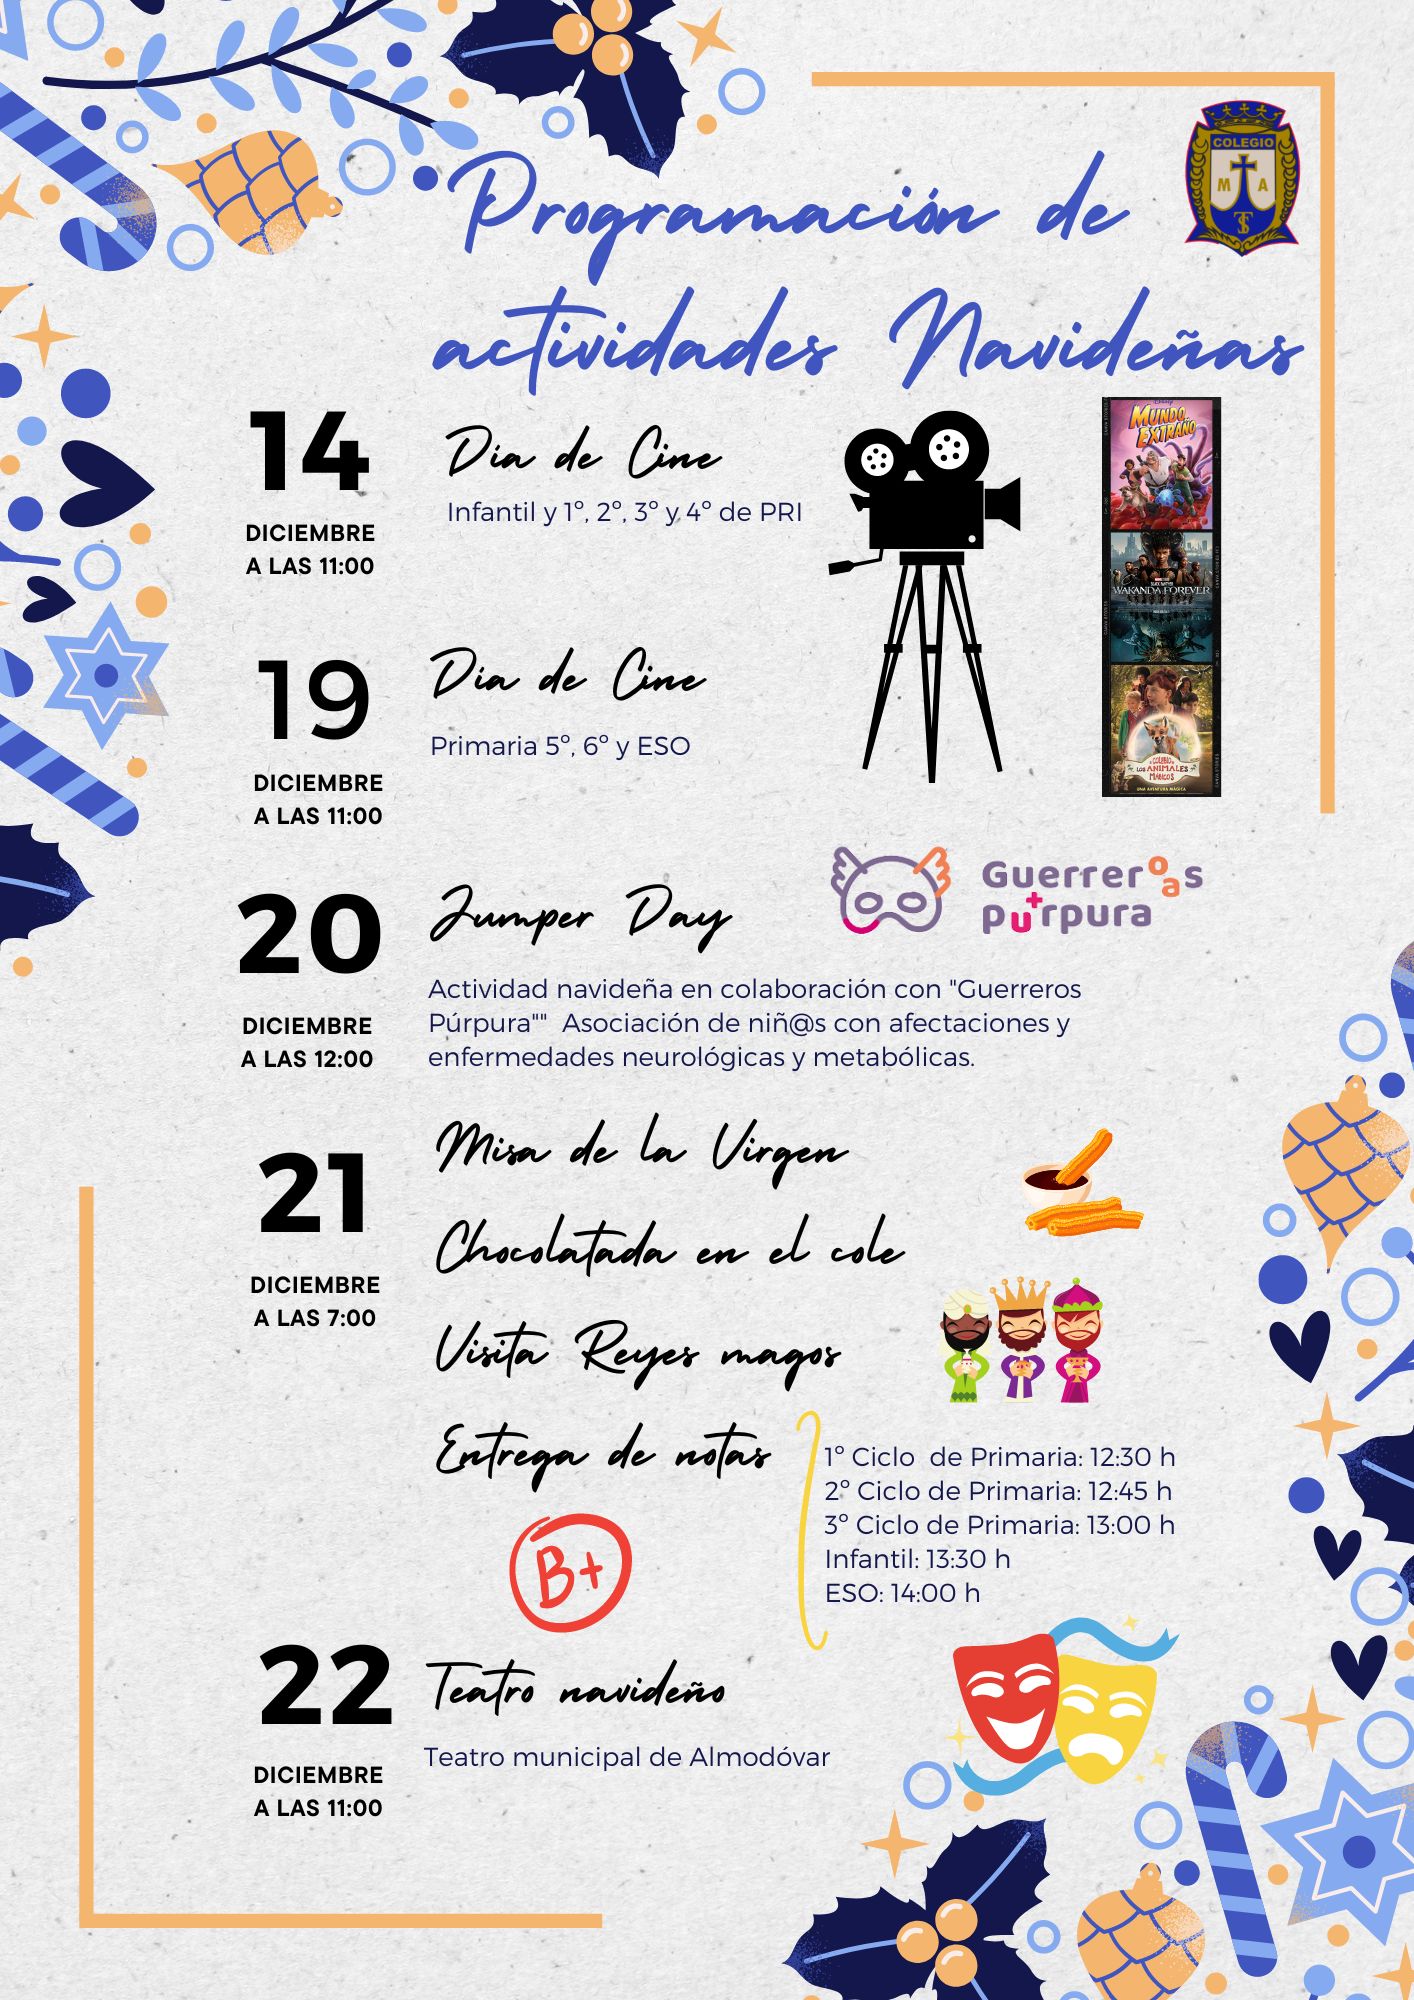 COLEGIO
M A
Programación de
actividades Navideñas
14
DICIEMBRE
A LAS 11:00
Dia de Cine
Infantil y 1º, 2º, 3º y 4º de PRI
MUNDO
EXTRAÑO
WAKANDA FOREVER
LOS ANIMALES
MÁGICOS
UNA AVENTURA MÁGICA
19
DICIEMBRE
A LAS 11:00
Dia de Cine
Primaria 5º, 6º y ESO
20
DICIEMBRE
A LAS 12:00
Jumper Day
Guerreroas
púrpura
Actividad navideña en colaboración con "Guerreros
Púrpura"" Asociación de niñ@s con afectaciones y
enfermedades neurológicas y metabólicas.
21
DICIEMBRE
A LAS 7:00
Misa de la Virgen
Chocolatada en el cole
Visita Reyes magos
Entrega de notas
1º Ciclo de Primaria: 12:30 h
2º Ciclo de Primaria: 12:45 h
3º Ciclo de Primaria: 13:00 h
Infantil: 13:30 h
ESO: 14:00 h
B+
22
DICIEMBRE
A LAS 11:00
Teatro navideño
Teatro municipal de Almodóvar